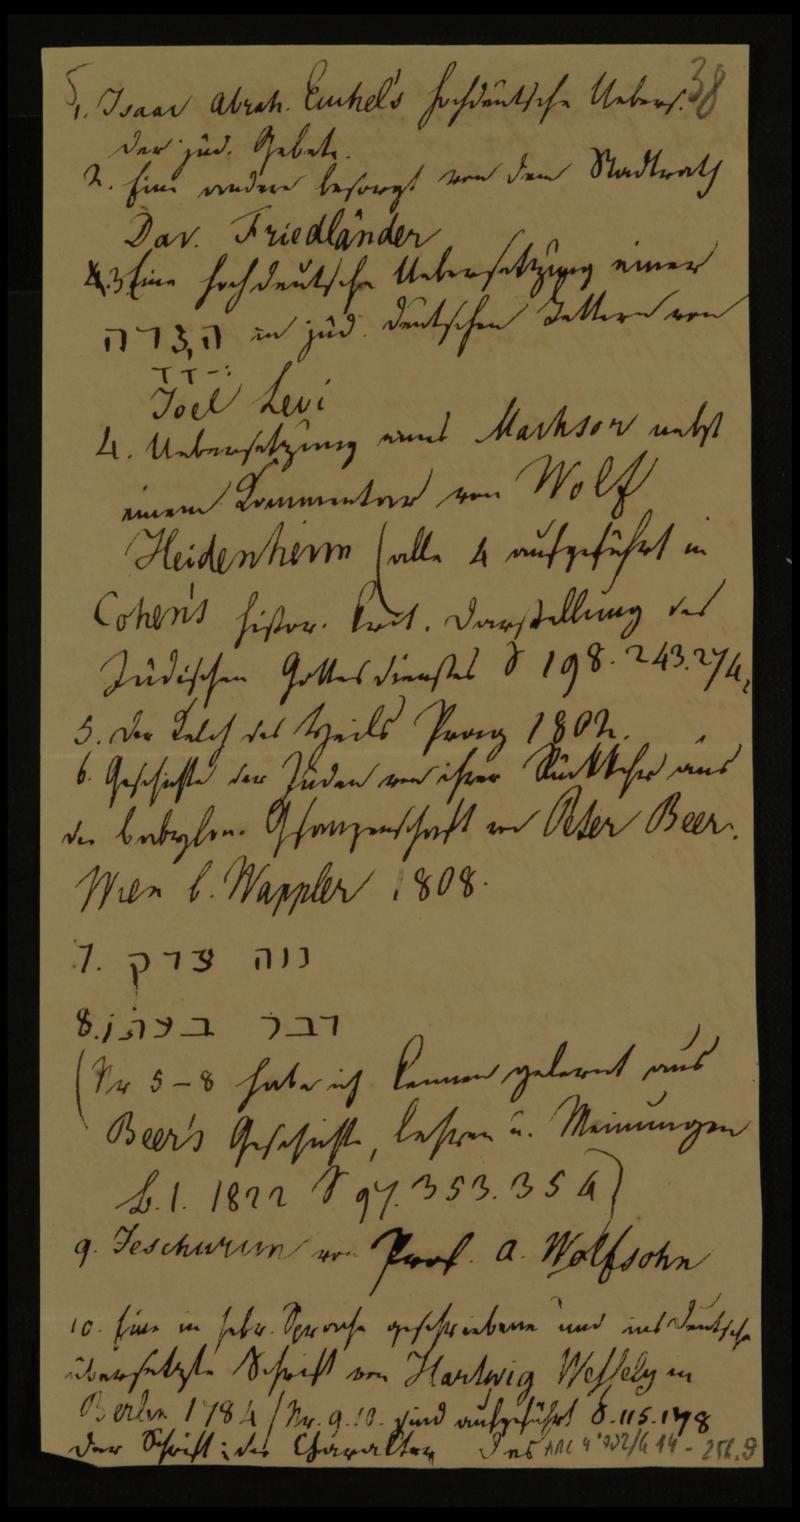 38
1. Isaac Abrah. Euchel's hochdeutsche Uebers.
der jüd. Gebete.
2. Eine andere besorgt von dem Stadtrath
Dav. Friedländer
3 Eine hochdeutsche Uebersetzung einer
הגדה in jüd. deutschen Lettern von
Joel Levi
4. Uebersetzung eines Machsor nebst
einem Kommentar von Wolf
Heidenheim (alle 4 aufgeführt in
Cohen's histor. krit. Darstellung des
Jüdischen Gottesdienstes S 198. 243. 274,
5. Der Kelch des Heils Prag 1802.
6. Geschichte der Juden von ihrer Rückkehr aus
der babylon. Gfangenschaft von Peter Beer.
Wien b. Wappler 1808.
7. נוה צדק
8. דבר בעתו
(Nr 5-8 habe ich kennen gelernt aus
Beer's Geschichte, Lehren u. Meinungen
B. 1. 1822 S 97. 353. 354)
9. Jeschurun von Prof. A. Wolfsohn
10. Eine in hebr. Sprache geschriebene und ins Deutsche
übersetzte Schrift von Hartwig Wessely in
Berlin 1784 (Nr. 9. 10. sind aufgeführt S. 115. 178
der Schrift: der Charakter des ARC 4° 792/G 14 - 256.9